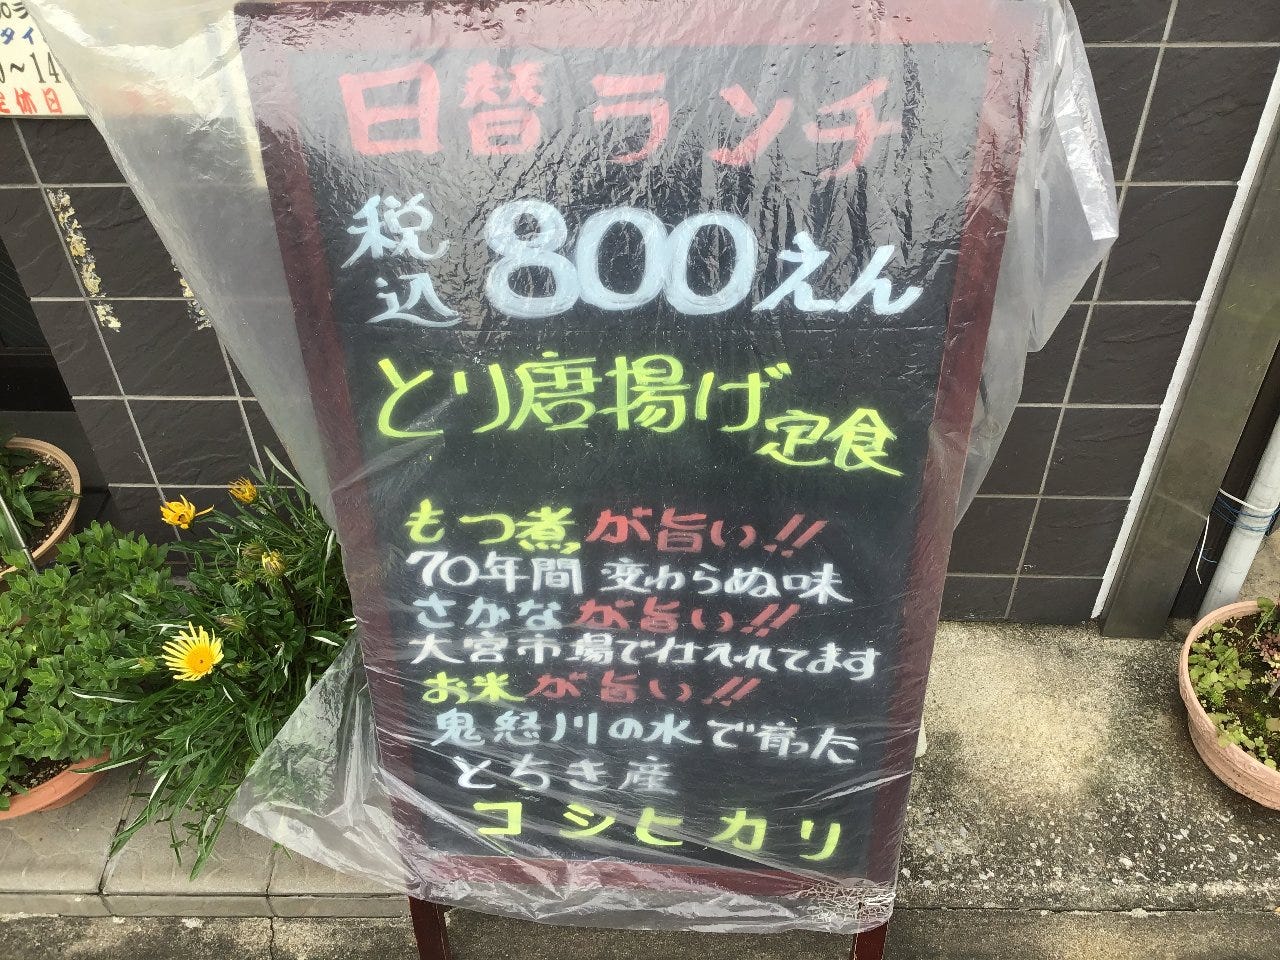 タイ
～14
休日
日替ランチ
税込800えん
とり唐揚げ定食
もつ煮が旨い!!
70年間 変わらぬ味
さかなが旨い!!
大宮市場で仕入れてます
お米が旨い!!
鬼怒川の水で育った
とちき産
コシヒカリ